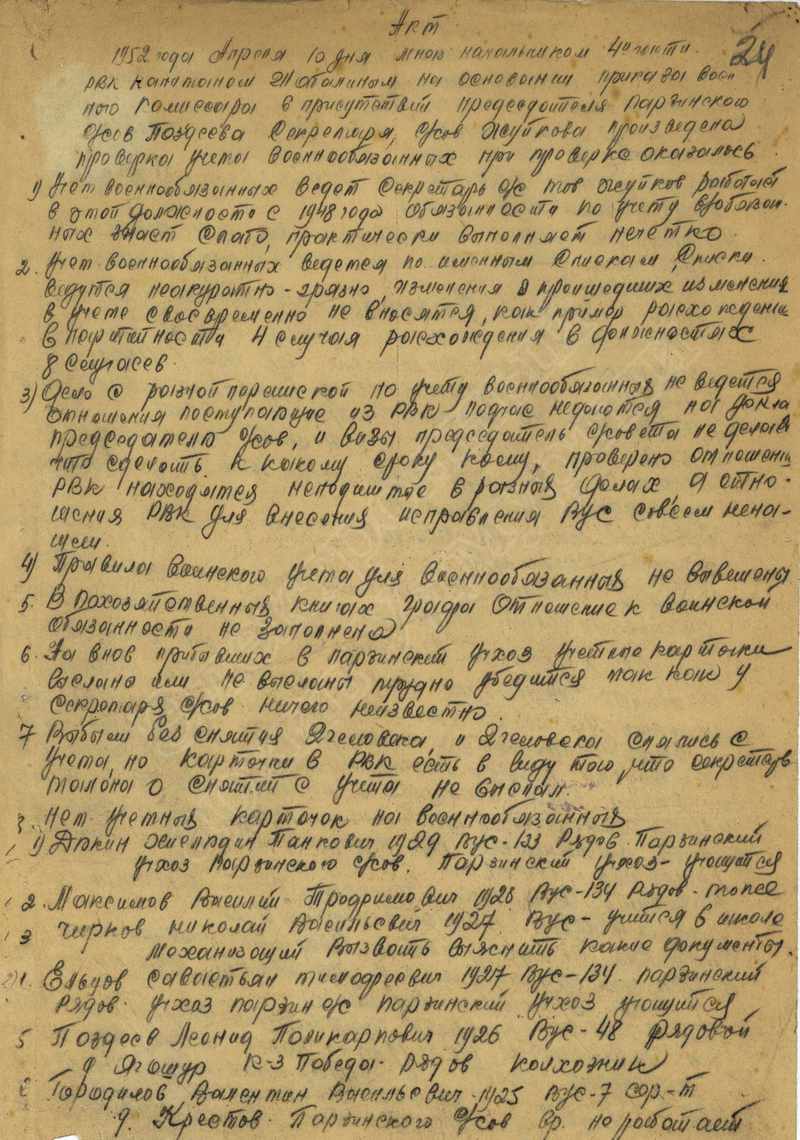 Акт
24
1952 года Апреля 10 дня мною начальником 4й части
РВК капитаном на основании приказа воен
ного комиссара в присутствий председателя Парзинского
с/сов Поздеева Секретаря, с/сов Жуйкова произведена
проверка учета военнообязанных при проверке оказалось
1) Учет военнообязанных ведет Секретарь с/с тов Жуйков работает
в этой должности с 1948 года обязанности по учету в/обязан-
ных знает слабо, практически выполняет нечетко.
2. Учет военнообязанных ведется по именным Спискам, Списки
ведутся неакуратно-грязно, изменения о происшедших изменения
в учете своевременно не вносятся, как пример расхождении
в партийности 4 случая расхождения в должностях
8 случаев.
3) Дело с разной перепиской по учету военнообязанных не ведется
отношения поступающие из РВК подчас недаются на
председателю с/сов, и визы председатель с/совета не делает
что сделать к какому сроку кому, проверено отношении
РВК находятся неподшитые в разных делах, а отно-
шения РВК для внесения исправления ВУС совсем нена-
шли.
4) Правила воинского учета для военнообязанных не вывешены
5. В похозяйственных книгах графа Отношение к воинской
обязанности не заполнена
6. На внов прибывших в парзинский учхоз учетные карточки
высланы или не высланы трудно убедится так как у
секретаря с/сов ничего неизвестно.
7 Выбыли без снятия человека, и человека снялись с
учета, но карточки в РВК есть в виду того, что секретарь
талона о снятии с учета не выслал.
8. нет учетных карточок на военнообязанных
1) Панкович 1929 ВУС-133 Рядов. Парзинский
учхоз Парзинского с/сов. Парзинский учхоз- учащийся
2. Максимов Василий 1928 ВУС-134 Рядов-тоже
3 Чирков Николай Васильевич 1927 ВУС- учится в школе
механизаций Вызвать выяснить какие документы.
4. Ельцов Савастьян 1927 ВУС-134 парзинский
Рядов. учхоз парзин с/с Парзинский учхоз учащийся
5 Поздеев Леонид Поликарпович 1926 ВУС-48 рядовой
д Ягошур к-з Победа- Рядов колхозник
6 Городилов Валентин Васильевич-1925 ВУС-7 сер.-т
д. Крестов. Парзинского с/сов вр. не работает